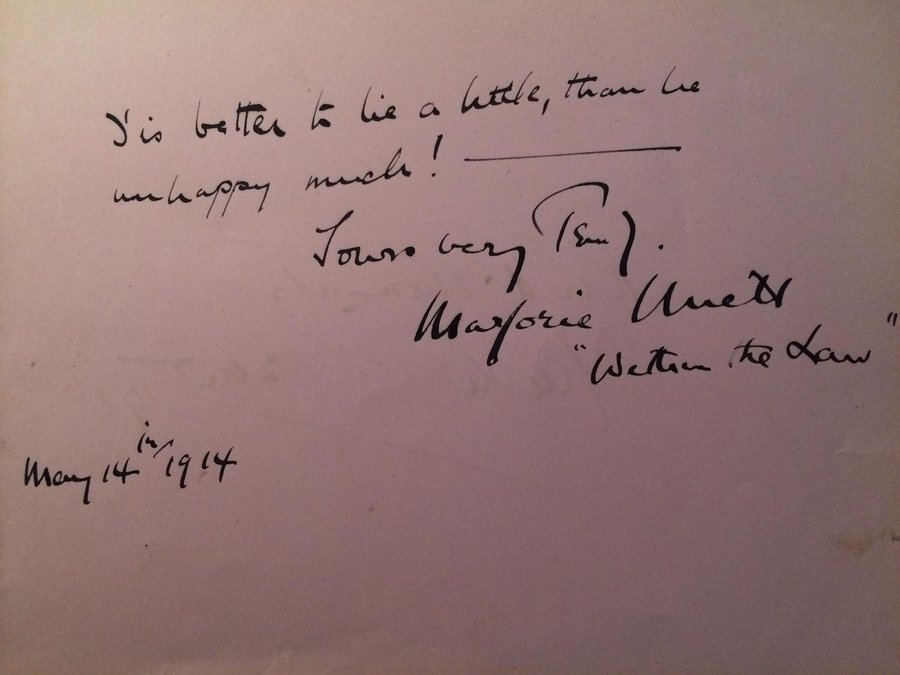 'Tis better to lie a little, than be
unhappy much! ———
Yours very
Marjorie
"Within the Law"
May 14th 1914